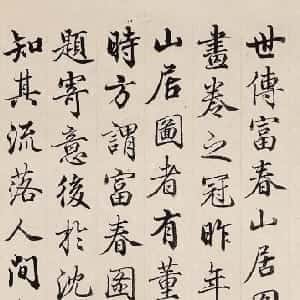 世傳富春山居圖
畫卷之冠昨年
山居圖者有董
時方謂富春圖
題寄意後於沈
知其流落人間